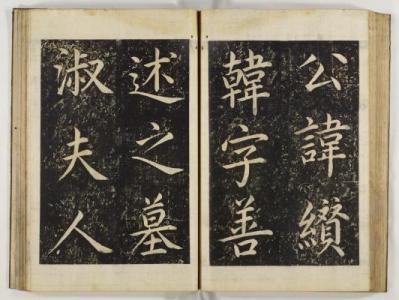 公諱纘
韓字善
述之墓
淑夫人